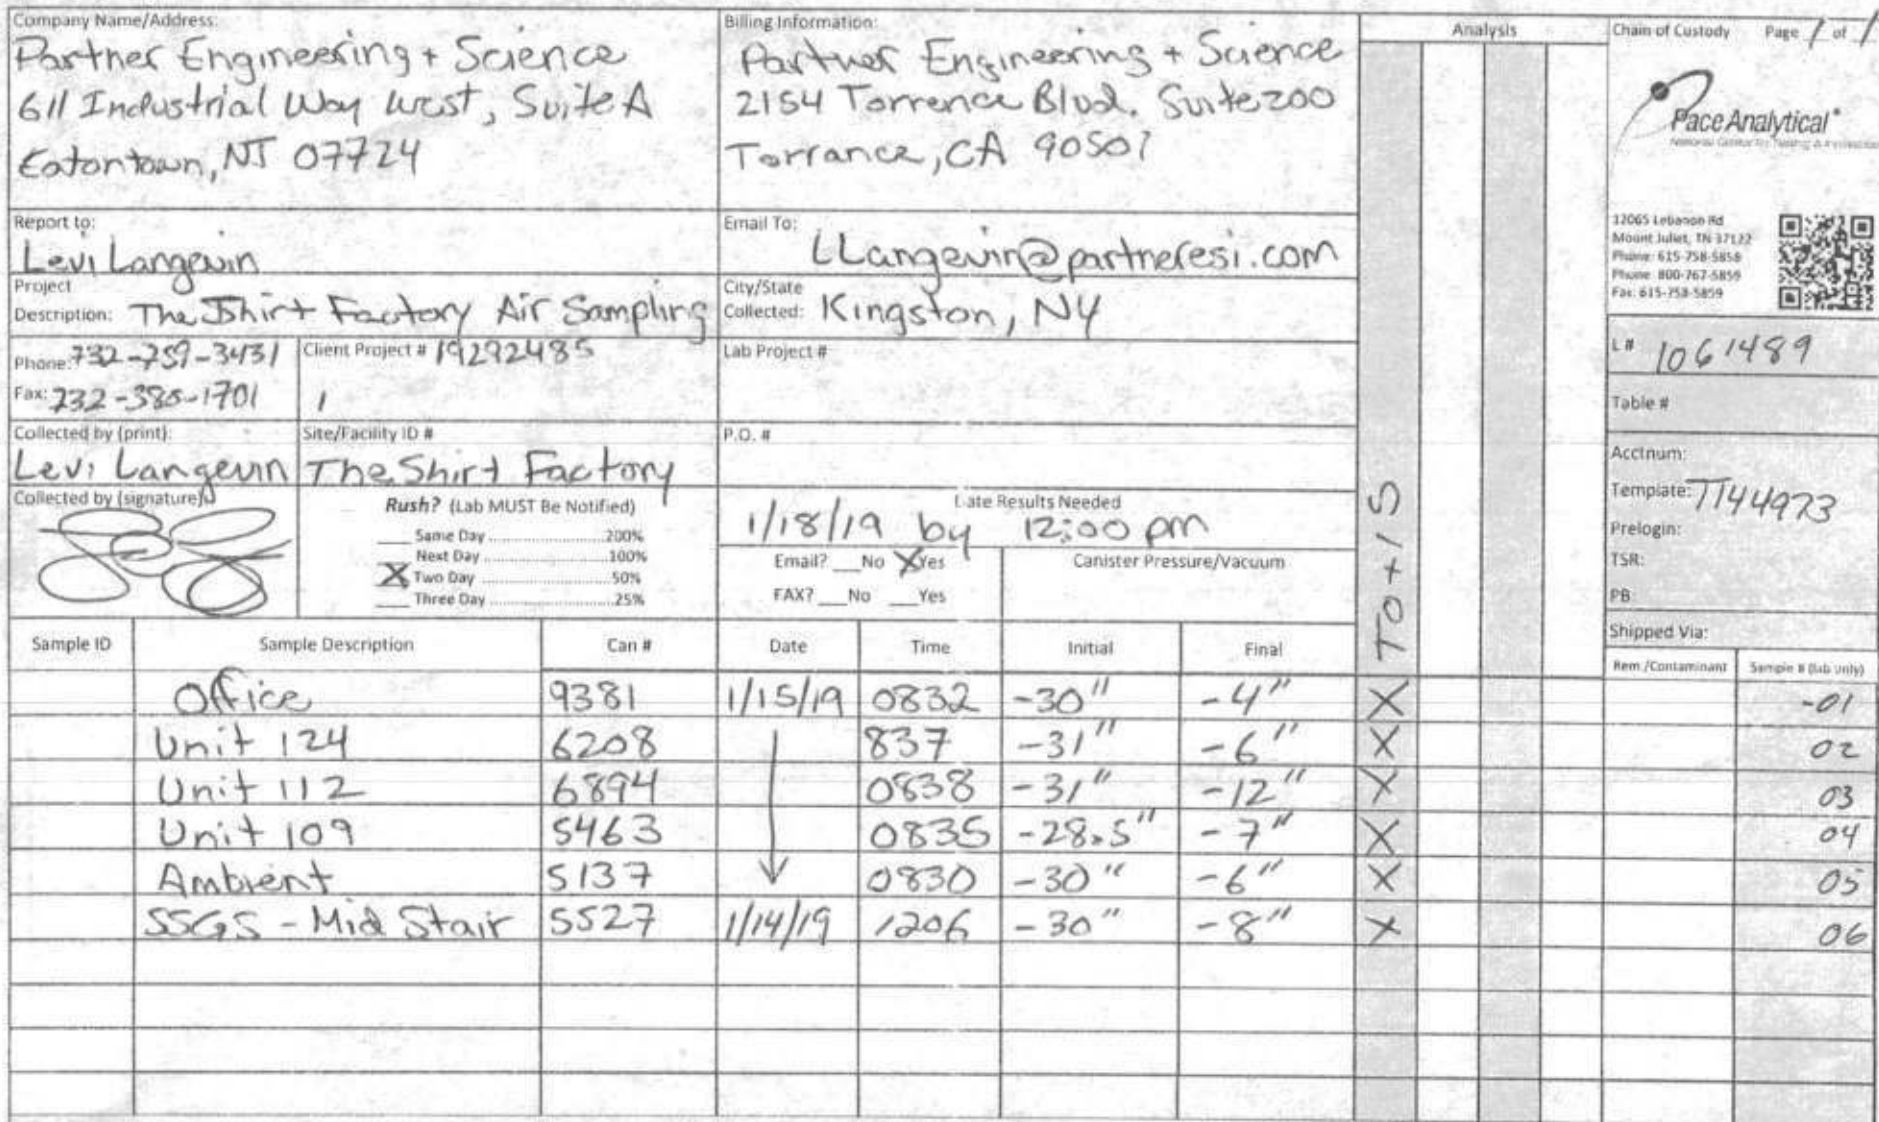 Company Name/Address:
Partner Engineering + Science
611 Industrial Way West, Suite A
Eatontown, NJ 07724
Billing Information:
Partner Engineering + Science
2154 Torrence Blvd. Suite 200
Torrance, CA 90501
Analysis
Chain of Custody Page 1 of 1
Pace Analytical®
National Center for Testing & Innovation
12065 Lebanon Rd
Mount Juliet, TN 37122
Phone: 615-758-5858
Phone: 800-767-5859
Fax: 615-758-5859
Report to:
Levi Langevin
Email To:
LLangevin@partneresi.com
Project
Description: The Shirt Factory Air Sampling
City/State
Collected: Kingston, NY
L# 1061489
Phone: 732-759-3431
Client Project # 19292485
Lab Project #
Fax: 732-380-1701
1
Table #
Collected by (print):
Levi Langevin
Site/Facility ID #
The Shirt Factory
P.O. #
Acctnum:
Template: T144973
Prelogin:
TSR:
PB:
Collected by (signature):
Rush? (Lab MUST Be Notified)
Same Day ..............................200%
Next Day ..............................100%
X Two Day ..............................50%
Three Day ..............................25%
Date Results Needed
1/18/19 by 12:00 pm
Email? No X Yes
FAX? No Yes
Canister Pressure/Vacuum
TO+15
Shipped Via:
Sample ID Sample Description Can # Date Time Initial Final Rem./Contaminant Sample # (lab only)
Office 9381 1/15/19 0832 -30" -4" X -01
Unit 124 6208 837 -31" -6" X 02
Unit 112 6894 0838 -31" -12" X 03
Unit 109 5463 0835 -28.5" -7" X 04
Ambient 5137 0830 -30" -6" X 05
SSGS - Mid Stair 5527 1/14/19 1206 -30" -8" X 06